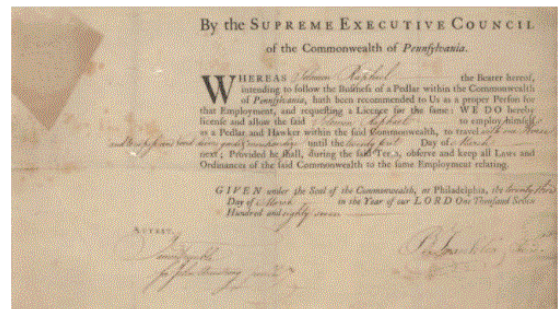 By the SUPREME EXECUTIVE COUNCIL
of the Commonwealth of Pennsylvania.
WHEREAS Solomon Raphael the Bearer hereof,
intending to follow the Business of a Pedlar within the Commonwealth
of Pennsylvania, hath been recommended to Us as a proper Person for
that Employment, and requesting a Licence for the same: WE DO hereby
license and allow the said Solomon Raphael to employ himself
as a Pedlar and Hawker within the said Commonwealth, to travel with one Horse
and until the twenty first Day of March
next; Provided he shall, during the said Term, observe and keep all Laws and
Ordinances of the said Commonwealth to the same Employment relating.
GIVEN under the Seal of the Commonwealth, at Philadelphia, the twenty
Day of March in the Year of our LORD One Thousand Seven
Hundred and eighty seven
ATTEST.
for John Armstrong